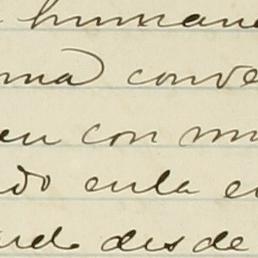 humana
ma) conve
en con mu
do enla e
ando desde